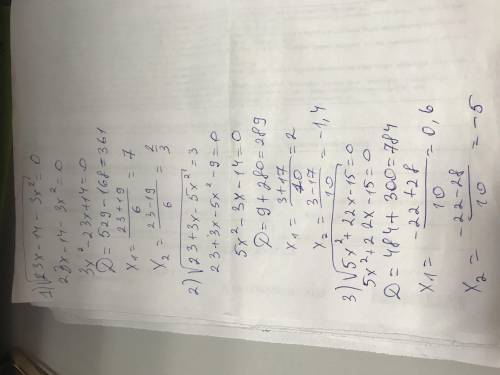 1) √23x - 14 - 3x² = 0
23x - 14 - 3x² = 0
3x² - 23x + 14 = 0
D = 529 - 168 = 361
x₁ = 23 + 19 / 6 = 7
x₂ = 23 - 19 / 6 = 2/3
2) √23 + 3x - 5x² = 3
23 + 3x - 5x² - 9 = 0
5x² - 3x - 14 = 0
D = 9 + 280 = 289
x₁ = 3 + 17 / 10 = 2
x₂ = 3 - 17 / 10 = -1,4
3) √5x² + 22x - 15 = 0
5x² + 22x - 15 = 0
D = 484 + 300 = 784
x₁ = -22 + 28 / 10 = 0,6
x₂ = -22 - 28 / 10 = -5